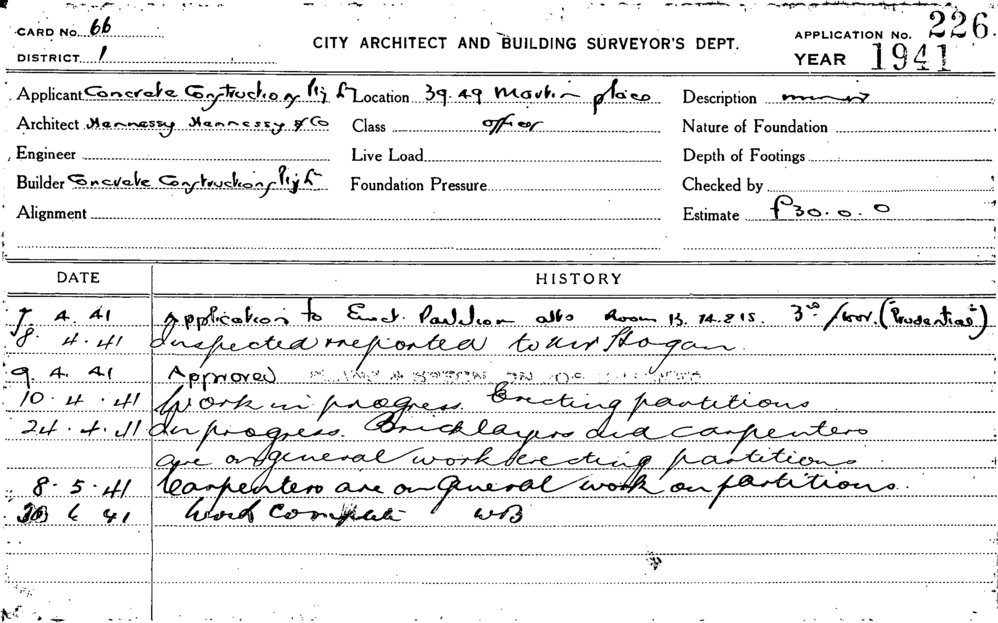 CARD No. 66
DISTRICT 1
CITY ARCHITECT AND BUILDING SURVEYOR'S DEPT.
APPLICATION No. 226
YEAR 1941
Applicant Concrete Constructions Pty Lt Location 39.49 Martin place Description
Architect Hennessy Hennessy & Co Class offices Nature of Foundation
Engineer Live Load Depth of Footings
Builder Concrete Constructions Pty Lt Foundation Pressure Checked by
Alignment Estimate £30.0.0
DATE HISTORY
7. 4. 41 Application to Erect. Partition alts Room 13. 14. & 15. 3rd floor. ("Prudential")
8. 4. 41 Inspected & reported to Mr Hogan
9. 4. 41 Approved
10. 4. 41 Work in progress. Erecting partitions
24. 4. 41 In progress. Bricklayers and carpenters
are on general work erecting partitions
8. 5. 41 Carpenters are on general work on partitions.
6 41 Work Complete WB